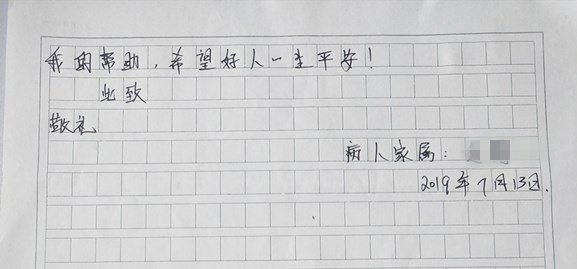 我的帮助，希望好人一生平安！
此致
敬礼
病人家属：
2019年7月13日.